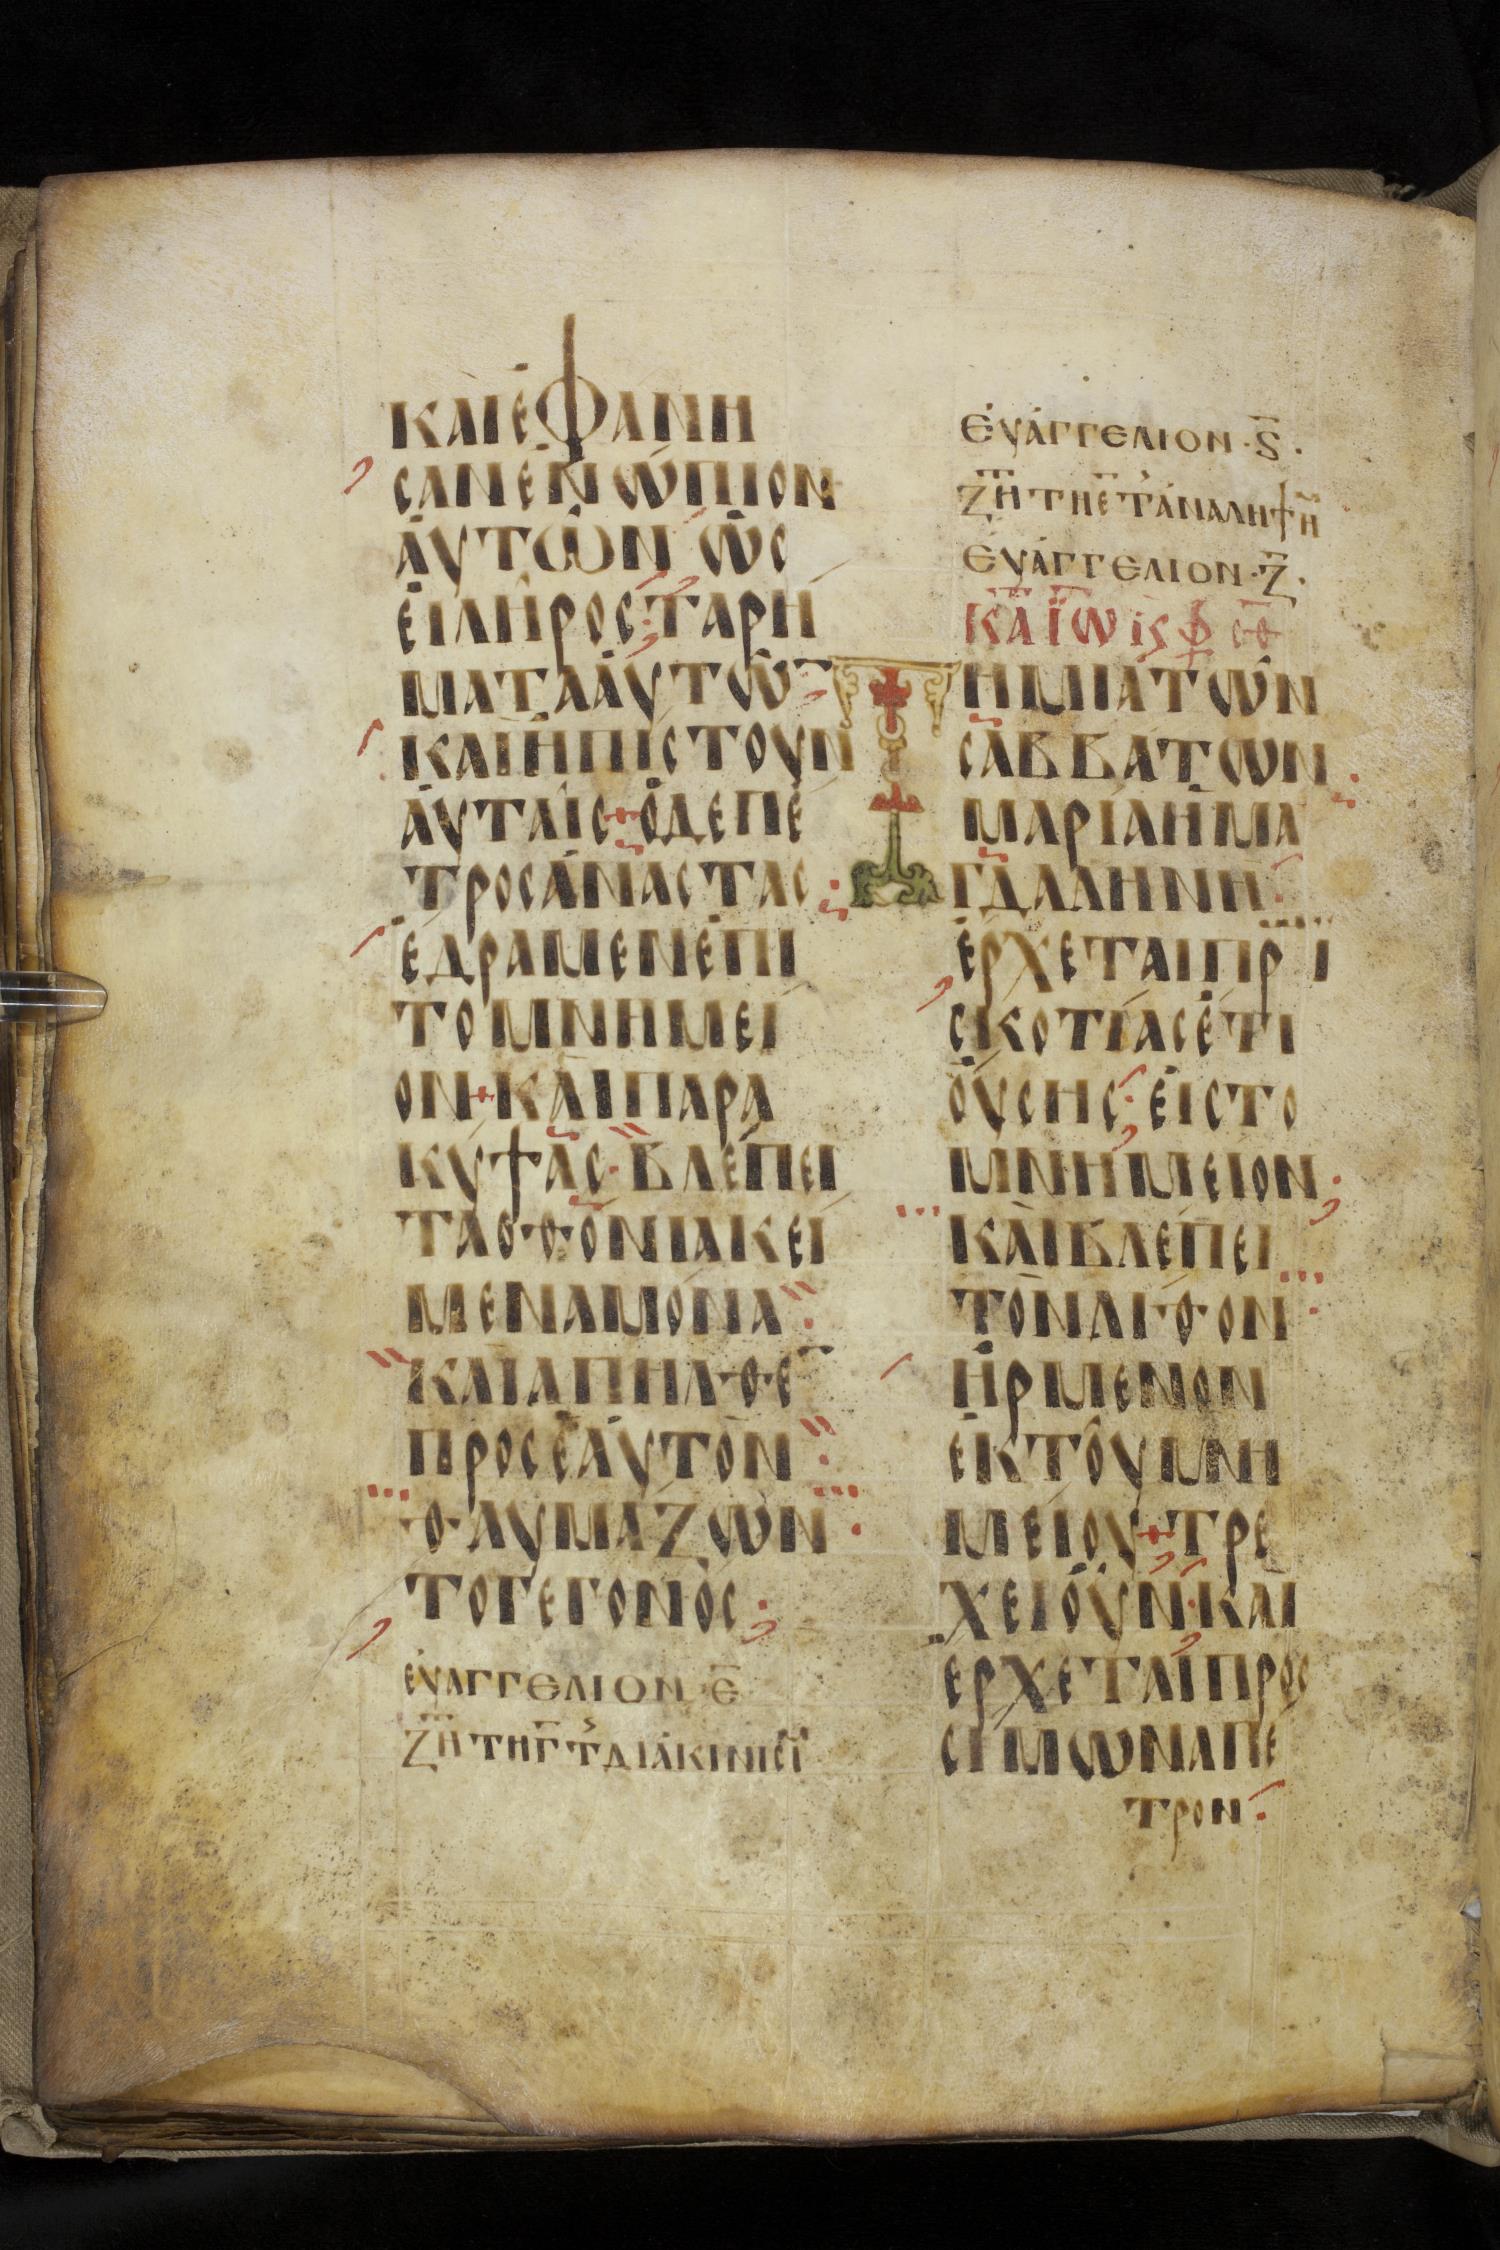 ΚΑΙ ΕΦΑΝΗ
ΣΑΝ ΕΝΩΠΙΟΝ
ΑΥΤΩΝ ΩΣ
ΕΙ ΛΗΡΟΣ· ΤΑ ΡΗ
ΜΑΤΑ ΑΥΤΩ̅
ΚΑΙ ΗΠΙΣΤΟΥΝ
ΑΥΤΑΙΣ + Ο ΔΕ ΠΕ
ΤΡΟΣ ΑΝΑΣΤΑΣ :
ΕΔΡΑΜΕΝ ΕΠΙ
ΤΟ ΜΝΗΜΕΙ
ΟΝ + ΚΑΙ ΠΑΡΑ
ΚΥΨΑΣ· ΒΛΕΠΕΙ
ΤΑ ΟΘΟΝΙΑ ΚΕΙ
ΜΕΝΑ ΜΟΝΑ·
ΚΑΙ ΑΠΗΛΘΕ̅
ΠΡΟΣ ΕΑΥΤΟΝ·
ΘΑΥΜΑΖΩΝ
ΤΟ ΓΕΓΟΝΟΣ·
ΕΥΑΓΓΕΛΙΟΝ Ε̅
ΖΗ ΤΗ Γ̅ Τ ΔΙΑΚΙΝΙΣΙ
ΕΥΑΓΓΕΛΙΟΝ · Ϛ̅ ·
ΖΗ ΤΗ Ε̅ Τ ΑΝΑΛΗΨΗ
ΕΥΑΓΓΕΛΙΟΝ · Ζ̅ ·
ΤΗ ΜΙΑ ΤΩΝ
ΣΑΒΒΑΤΩΝ·
ΜΑΡΙΑ Η ΜΑ
ΓΔΑΛΗΝΗ·
ΕΡΧΕΤΑΙ ΠΡΩΪ
ΣΚΟΤΙΑΣ ΕΤΙ
ΟΥΣΗΣ· ΕΙΣ ΤΟ
ΜΝΗΜΕΙΟΝ·
ΚΑΙ ΒΛΕΠΕΙ
ΤΟΝ ΛΙΘΟΝ
ΗΡΜΕΝΟΝ
ΕΚ ΤΟΥ ΜΝΗ
ΜΕΙΟΥ + ΤΡΕ
ΧΕΙ ΟΥΝ· ΚΑΙ
ΕΡΧΕΤΑΙ ΠΡΟΣ
ΣΙΜΩΝΑ ΠΕ
ΤΡΟΝ·